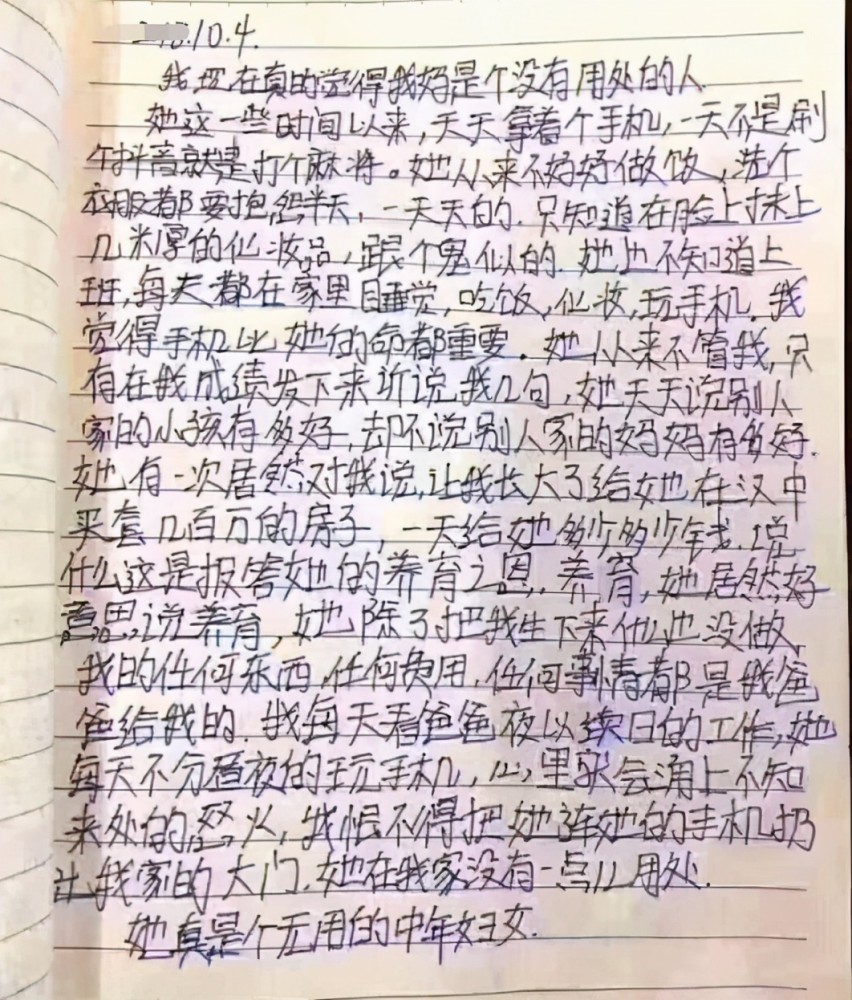 .10.4.
我现在真的觉得我妈是个没有用处的人
她这一些时间以来,天天拿着个手机,一天不是刷
个抖音就是打个麻将。她从来不好好做饭,洗个
衣服都要抱怨半天,一天天的.只知道在脸上抹上
几米厚的化妆品,跟个鬼似的.她也不知道上
班,每天都在家里睡觉,吃饭,化妆,玩手机.我
觉得手机比她的命都重要.她从来不管我,只
有在我成绩发下来听说我几句,她天天说别人
家的小孩有多好,却不说别人家的妈妈有多好.
她有一次居然对我说,让我长大了给她在汉中
买套几百万的房子,一天给她多少多少钱.说
什么这是报答她的养育之恩,养育,她居然好
意思说养育,她除了把我生下来什么也没做,
我的任何东西,任何费用,任何事情都是我爸
爸给我的.我每天看爸爸夜以续日的工作,她
每天不分昼夜的玩手机,心里就会涌上不知
来处的怒火,我恨不得把她连她的手机扔
出我家的大门.她在我家没有一点儿用处.
她真是个无用的中年妇女.